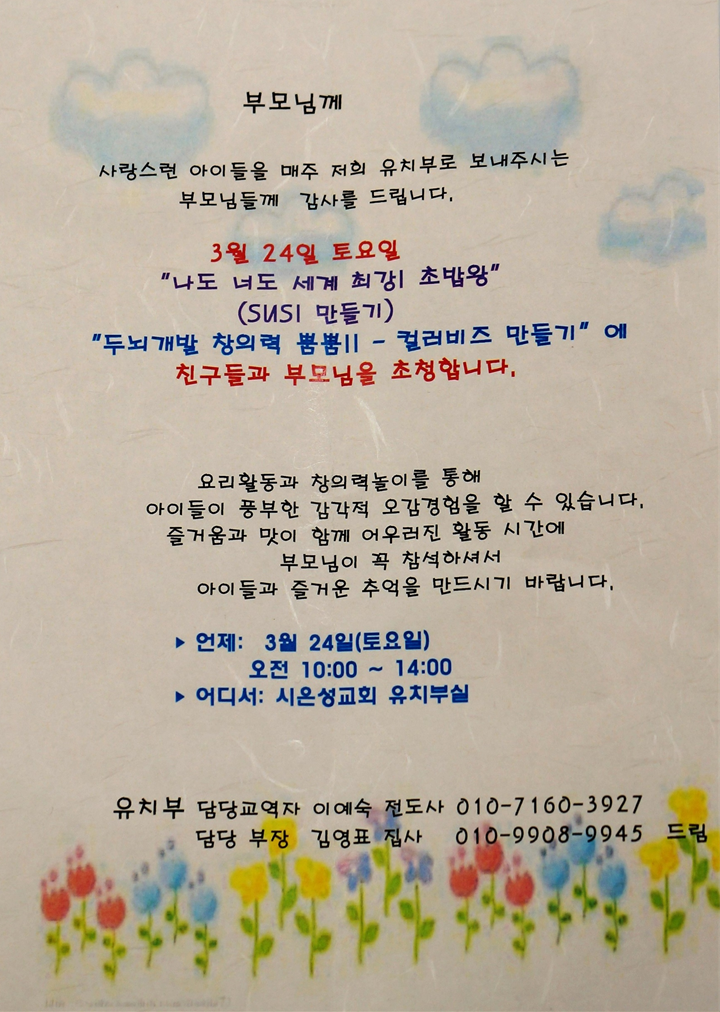 부모님께
사랑스런 아이들을 매주 저희 유치부로 보내주시는
부모님들께 감사를 드립니다.
3월 24일 토요일
"나도 너도 세계 최강! 초밥왕"
(SUSI 만들기)
"두뇌개발 창의력 뿜뿜!! - 컬러비즈 만들기" 에
친구들과 부모님을 초청합니다.
요리활동과 창의력놀이를 통해
아이들이 풍부한 감각적 오감경험을 할 수 있습니다.
즐거움과 맛이 함께 어우러진 활동 시간에
부모님이 꼭 참석하셔서
아이들과 즐거운 추억을 만드시기 바랍니다.
▶ 언제: 3월 24일(토요일)
오전 10:00 ~ 14:00
▶ 어디서: 시온성교회 유치부실
유치부 담당교역자 이예숙 전도사 010-7160-3927
담당 부장 김영표 집사 010-9908-9945 드림